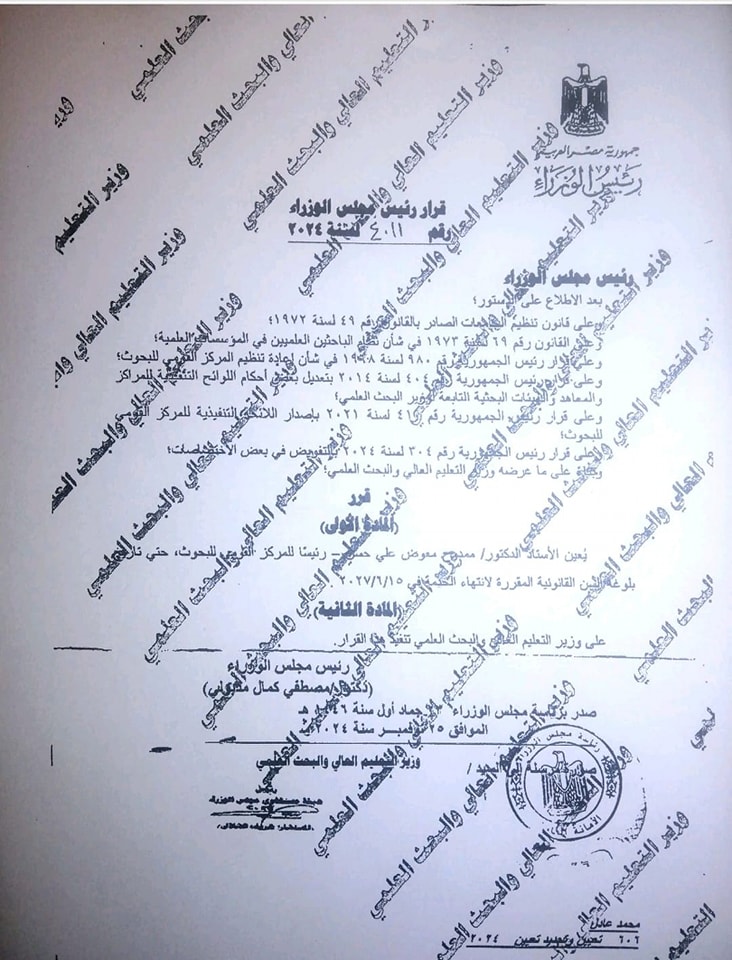 جمهورية مصر العربية
رئيس الوزراء
قرار رئيس مجلس الوزراء
رقم ٤٠١١ لسنة ٢٠٢٤
رئيس مجلس الوزراء
بعد الاطلاع على الدستور؛
وعلى قانون تنظيم الجامعات الصادر بالقانون رقم ٤٩ لسنة ١٩٧٢؛
وعلى القانون رقم ٦٩ لسنة ١٩٧٣ في شأن نظام الباحثين العلميين في المؤسسات العلمية؛
وعلى قرار رئيس الجمهورية رقم ٩٨٠ لسنة ١٩٩٨ في شأن إعادة تنظيم المركز القومي للبحوث؛
وعلى قرار رئيس الجمهورية رقم ٤٠٤ لسنة ٢٠١٤ بتعديل بعض أحكام اللوائح التنفيذية للمراكز
والمعاهد والهيئات البحثية التابعة لوزير البحث العلمي؛
وعلى قرار رئيس الجمهورية رقم لسنة ٢٠٢١ بإصدار اللائحة التنفيذية للمركز القومي
للبحوث؛
وعلى قرار رئيس الجمهورية رقم ٣٠٤ لسنة ٢٠٢٤ بالتفويض في بعض الاختصاصات؛
وبناءً على ما عرضه وزير التعليم العالي والبحث العلمي؛
قرر
(المادة الأولى)
يُعين الأستاذ الدكتور/ ممدوح معوض علي – رئيسًا للمركز القومي للبحوث، حتي تاريخ
بلوغه السن القانونية المقررة لانتهاء الخدمة في ٢٠٢٧/٦/١٥.
(المادة الثانية)
على وزير التعليم العالي والبحث العلمي تنفيذ هذا القرار.
رئيس مجلس الوزراء
(دكتور/مصطفي كمال مدبولي)
صدر برئاسة مجلس الوزراء جماد أول سنة ١٤٤٦ هـ
الموافق ٢٥ نوفمبر سنة ٢٠٢٤
وزير التعليم العالي والبحث العلمي
رئاسة مجلس الوزراء
محمد عادل
٦٠٦ تعيين وتجديد تعيين ٢٠٢٤